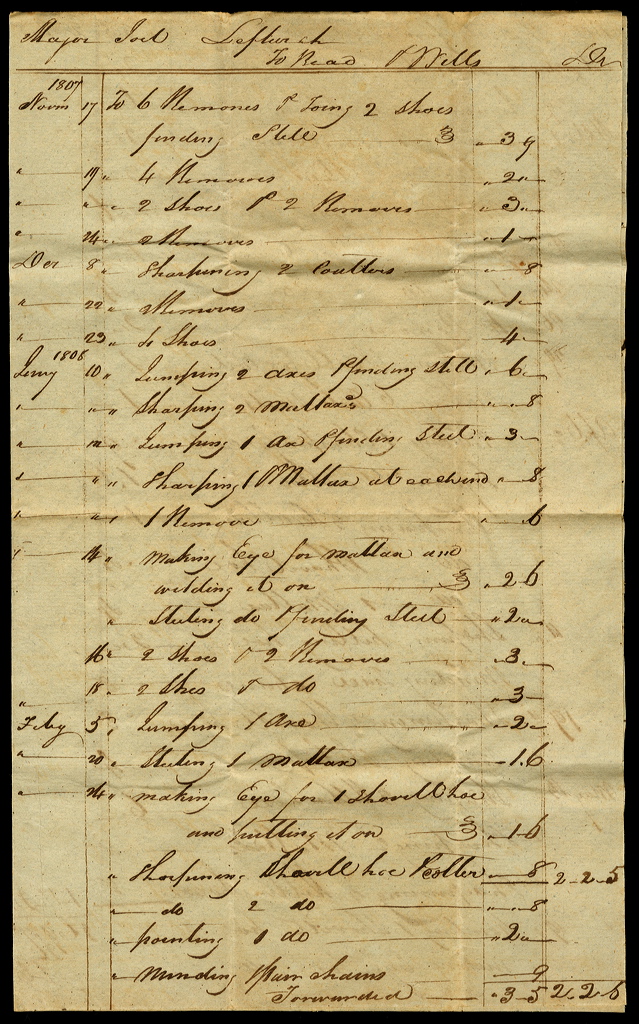 Major Joel Leftwich
To Read & Wells Dr
1807
Novm 17 To 6 Removes & Toing 2 Shoes
finding Steel " 3 9
" 19 " 4 Removes " 2 "
" " " 2 Shoes & 2 Removes " 3 "
" 24 " 2 Removes " 1 "
Decr 8 " Sharpening 2 Coulters " " 8
" 22 " 2 Removes " 1 "
" 23 " 4 Shoes 4 "
1808
Jany 10 " Jumping 2 axes & finding Steel " 6 "
" " " Sharping 2 Mattaxs " " 8
" 12 " Jumping 1 ax & finding Steel " 3 "
" " " Sharping 1 Mattax at each end " " 8
" " " 1 Remove " 6
" 14 " Making Eye for Mattax and
welding it on " 2 6
" Steeling do & finding Steel " 2 "
16 " 2 Shoes & 2 Removes " 3 "
" 18 " 2 Shoes & do " 3
Feby 5 " Jumping 1 Axe " 2 "
" 20 " Steeling 1 Mattax 1 . 6
" 24 " making Eye for 1 Shovell hoe
and putting it on " 1 6
" Sharpening Shovell hoe & Colter " 8 2 . 2 . 5
" do 2 do " " 8
" pointing 1 do " 2 "
" Mending pair Chains 9
Forwarded " 3 5 2 . 2 . 6